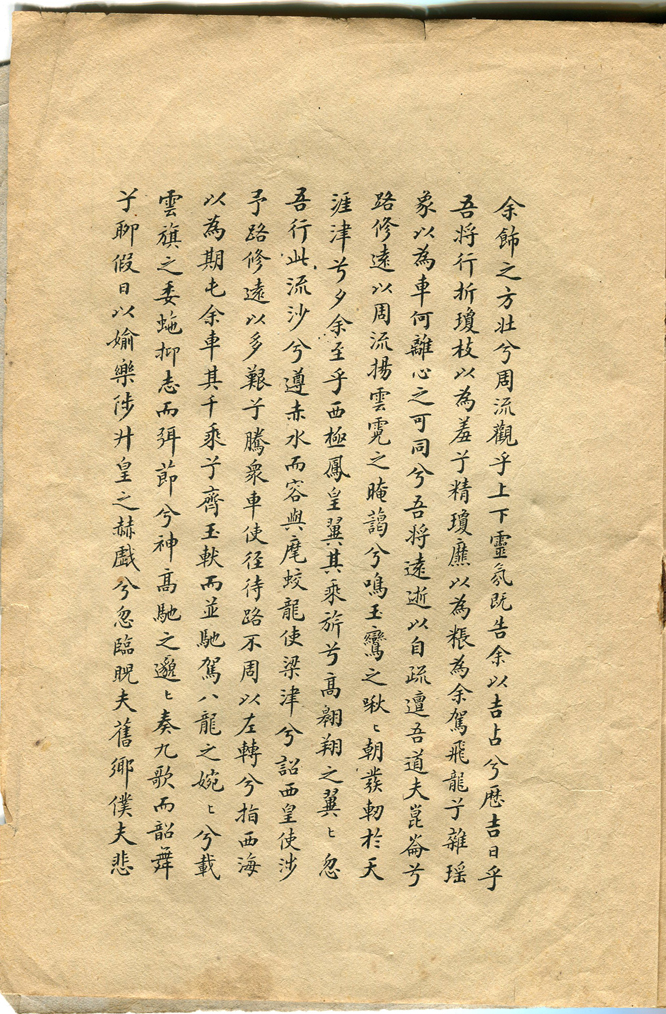 余飾之方壯兮周流觀乎上下靈氛既告余以吉占兮歷吉日乎
吾將行折瓊枝以為羞兮精瓊爢以為粻為余駕飛龍兮雜瑤
象以為車何離心之可同兮吾將遠逝以自疏邅吾道夫崑崙兮
路修遠以周流揚雲霓之晻藹兮鳴玉鸞之啾〻朝發軔於天
涯津兮夕余至乎西極鳳皇翼其乘旂兮高翱翔之翼〻忽
吾行此流沙兮遵赤水而容與麾蛟龍使梁津兮詔西皇使涉
予路修遠以多艱兮騰衆車使徑待路不周以左轉兮指西海
以為期屯余車其千乘兮齊玉軑而並馳駕八龍之婉〻兮載
雲旗之委蛇抑志而弭節兮神高馳之邈〻奏九歌而韶舞
兮聊假日以媮樂陟升皇之赫戲兮忽臨睨夫舊鄉僕夫悲